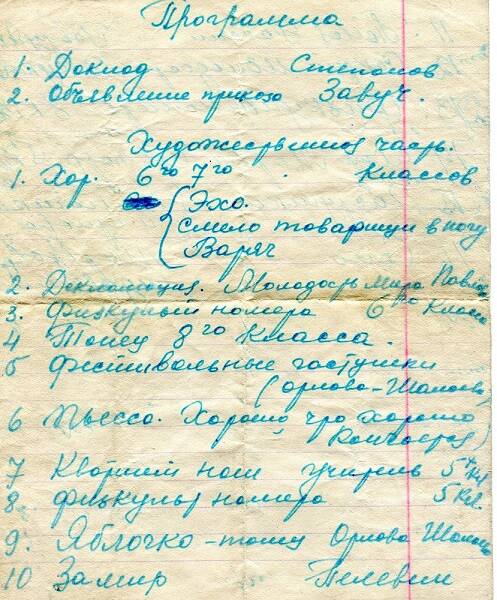 Программа
1. Доклад Степанов
2. Объявление приказа Завуч.
Художественная часть.
1. Хор. 6го 7го классов
Эхо.
Смело товарищи в ногу
Варяг
2. Декламация. Молодость мира Павлов
3. Физкульт номера 6го Класса
4 Танец 8го Класса.
5 Фестивальные частушки
(Орлова-
6 Пьесса. Хорошо что хорошо
кончается)
7 Квартет наш учитель 5 Кл
8. Физкульт номера 5 Кл.
9. Яблочко-танец Орлова
10 За мир Пелевин